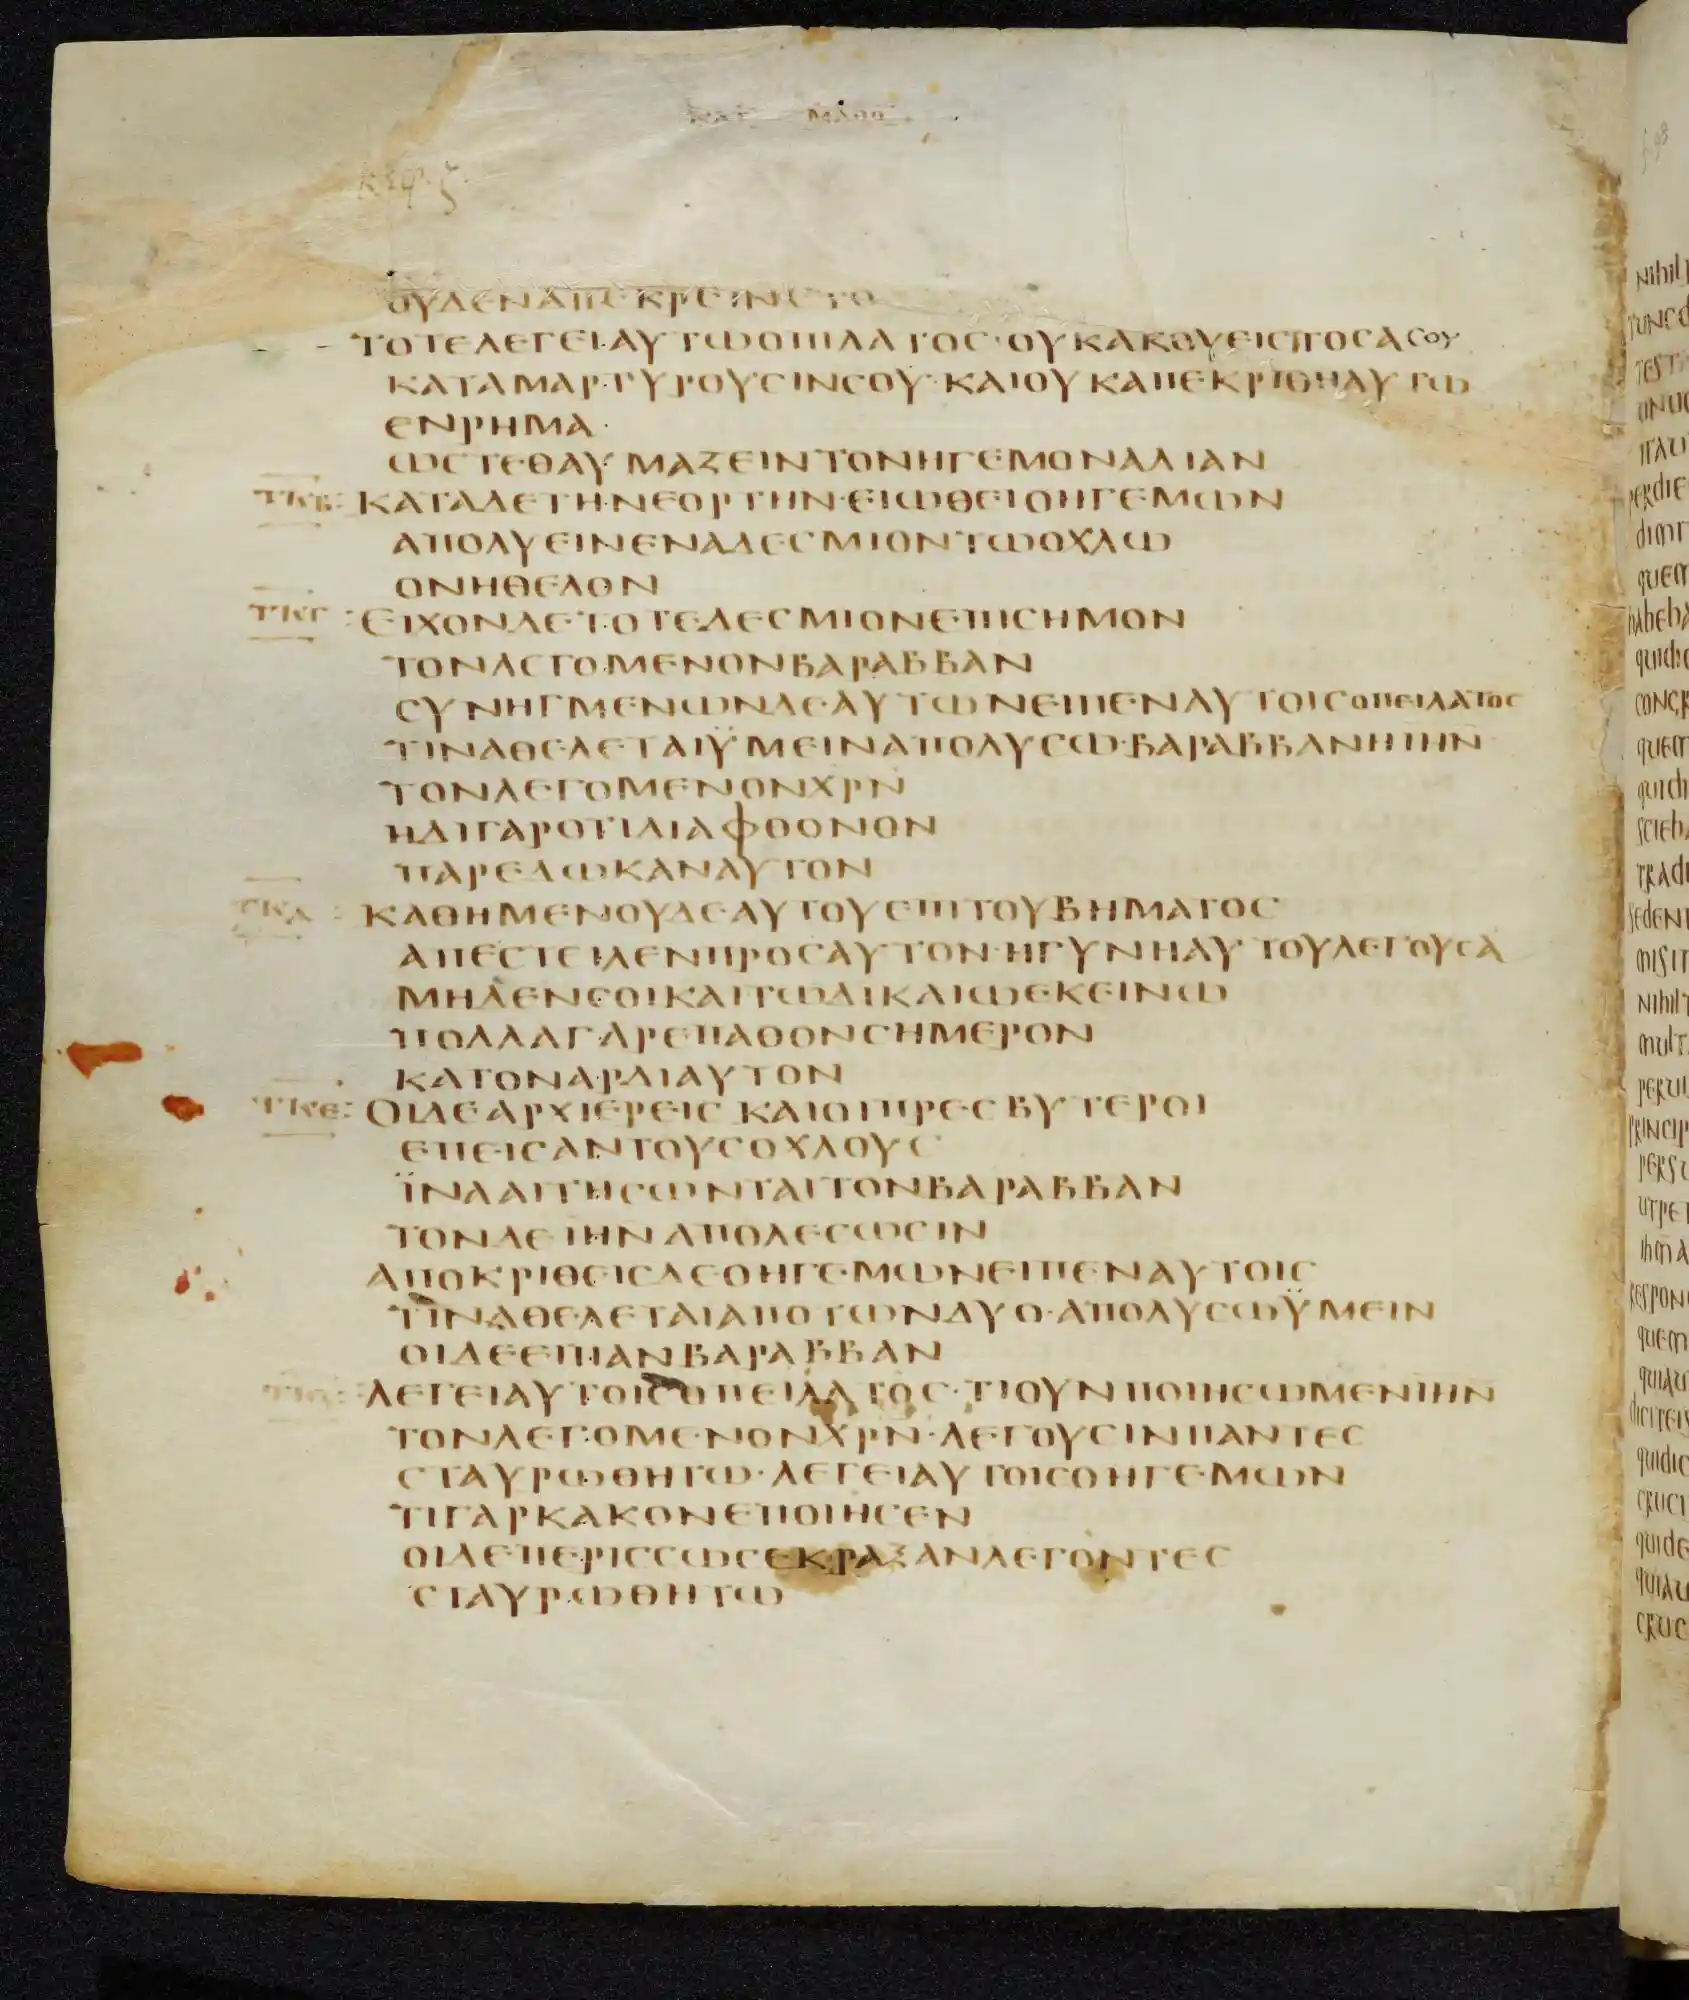 ΚΑΤ ΜΑΘΘ
κεφ. ζ.
ΟΥΔΕΝ ΑΠΕΚΡΕΙΝΕΤΟ
ΤΟΤΕΛΕΓΕΙΑΥΤΩΟΠΙΛΑΤΟΣ·ΟΥΚΑΚΟΥΕΙΣΠΟΣΑΣΟΥ
ΚΑΤΑΜΑΡΤΥΡΟΥΣΙΝΣΟΥ·ΚΑΙΟΥΚΑΠΕΚΡΙΘΗΑΥΤΩ
ΕΝΡΗΜΑ·
ΩΣΤΕΘΑΥΜΑΖΕΙΝΤΟΝΗΓΕΜΟΝΑΛΙΑΝ
ΤΚΒ: ΚΑΤΑΔΕΤΗΝΕΟΡΤΗΝ·ΕΙΩΘΕΙΟΗΓΕΜΩΝ
ΑΠΟΛΥΕΙΝΕΝΑΔΕΣΜΙΟΝΤΩΟΧΛΩ
ΟΝΗΘΕΛΟΝ
ΤΚΓ: ΕΙΧΟΝΔΕΤΟΤΕΔΕΣΜΙΟΝΕΠΙΣΗΜΟΝ
ΤΟΝΛΕΓΟΜΕΝΟΝΒΑΡΑΒΒΑΝ
ΣΥΝΗΓΜΕΝΩΝΔΕΑΥΤΩΝΕΙΠΕΝΑΥΤΟΙΣΟΠΕΙΛΑΤΟΣ
ΤΙΝΑΘΕΛΕΤΑΙΫΜΕΙΝΑΠΟΛΥΣΩ·ΒΑΡΑΒΒΑΝΗΙΗΝ
ΤΟΝΛΕΓΟΜΕΝΟΝΧΡΝ
ΗΔΙΓΑΡΟΤΙΔΙΑΦΘΟΝΟΝ
ΠΑΡΕΔΩΚΑΝΑΥΤΟΝ
ΤΚΔ: ΚΑΘΗΜΕΝΟΥΔΕΑΥΤΟΥΕΠΙΤΟΥΒΗΜΑΤΟΣ
ΑΠΕΣΤΕΙΛΕΝΠΡΟΣΑΥΤΟΝ·ΗΓΥΝΗΑΥΤΟΥΛΕΓΟΥΣΑ
ΜΗΔΕΝΣΟΙΚΑΙΤΩΔΙΚΑΙΩΕΚΕΙΝΩ
ΠΟΛΛΑΓΑΡΕΠΑΘΟΝΣΗΜΕΡΟΝ
ΚΑΤΟΝΑΡΔΙΑΥΤΟΝ
ΤΚΕ: ΟΙΔΕΑΡΧΙΕΡΕΙΣ ΚΑΙΟΙΠΡΕΣΒΥΤΕΡΟΙ
ΕΠΕΙΣΑΝΤΟΥΣΟΧΛΟΥΣ
ΪΝΑΑΙΤΗΣΩΝΤΑΙΤΟΝΒΑΡΑΒΒΑΝ
ΤΟΝΔΕΙΗΝΑΠΟΛΕΣΩΣΙΝ
ΑΠΟΚΡΙΘΕΙΣΔΕΟΗΓΕΜΩΝΕΙΠΕΝΑΥΤΟΙΣ
ΤΙΝΑΘΕΛΕΤΑΙΑΠΟΤΩΝΔΥΟ·ΑΠΟΛΥΣΩΫΜΕΙΝ
ΟΙΔΕΕΙΠΑΝΒΑΡΑΒΒΑΝ
ΛΕΓΕΙΑΥΤΟΙΣΟΠΕΙΛΑΤΟΣ·ΤΙΟΥΝΠΟΙΗΣΩΜΕΝΙΗΝ
ΤΟΝΛΕΓΟΜΕΝΟΝΧΡΝ·ΛΕΓΟΥΣΙΝΠΑΝΤΕΣ
ΣΤΑΥΡΩΘΗΤΩ·ΛΕΓΕΙΑΥΤΟΙΣΟΗΓΕΜΩΝ
ΤΙΓΑΡΚΑΚΟΝΕΠΟΙΗΣΕΝ
ΟΙΔΕΠΕΡΙΣΣΩΣΕΚΡΑΞΑΝΛΕΓΟΝΤΕΣ
ΣΤΑΥΡΩΘΗΤΩ